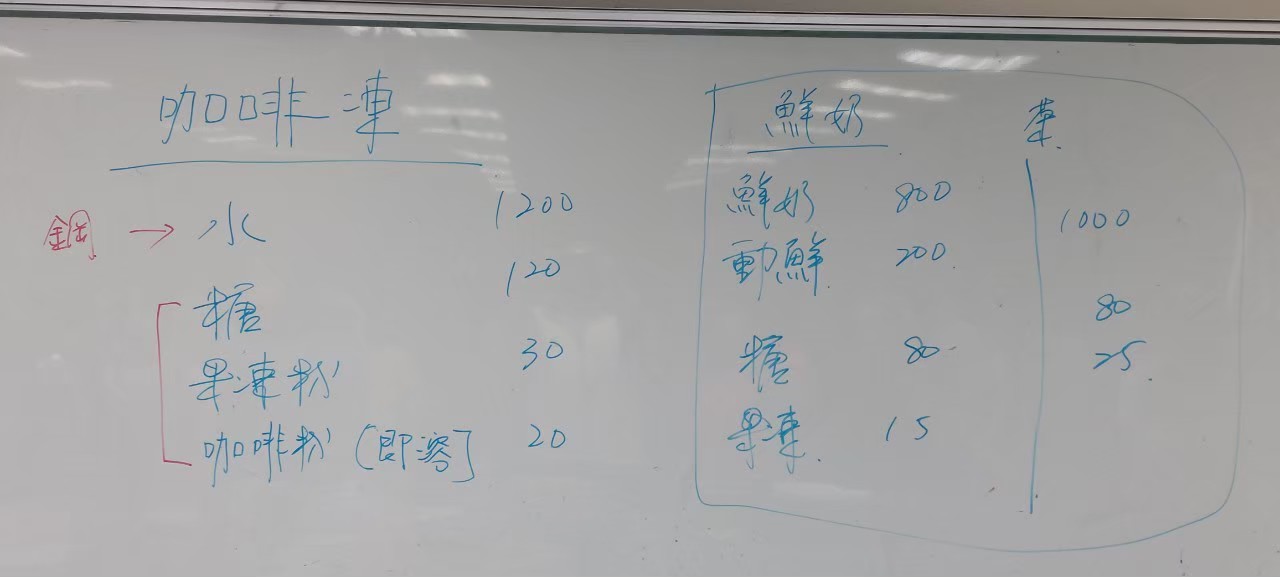 咖啡凍
鋼 → 水 1200
糖 120
果凍粉 30
咖啡粉 (即溶] 20
鮮奶
鮮奶 800 1000
動鮮 200
糖 80 80
果凍 15 25